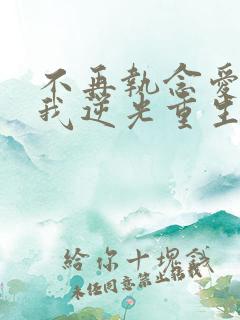 不再執念愛
我逆光重生
給你十塊錢
未经同意禁止转载